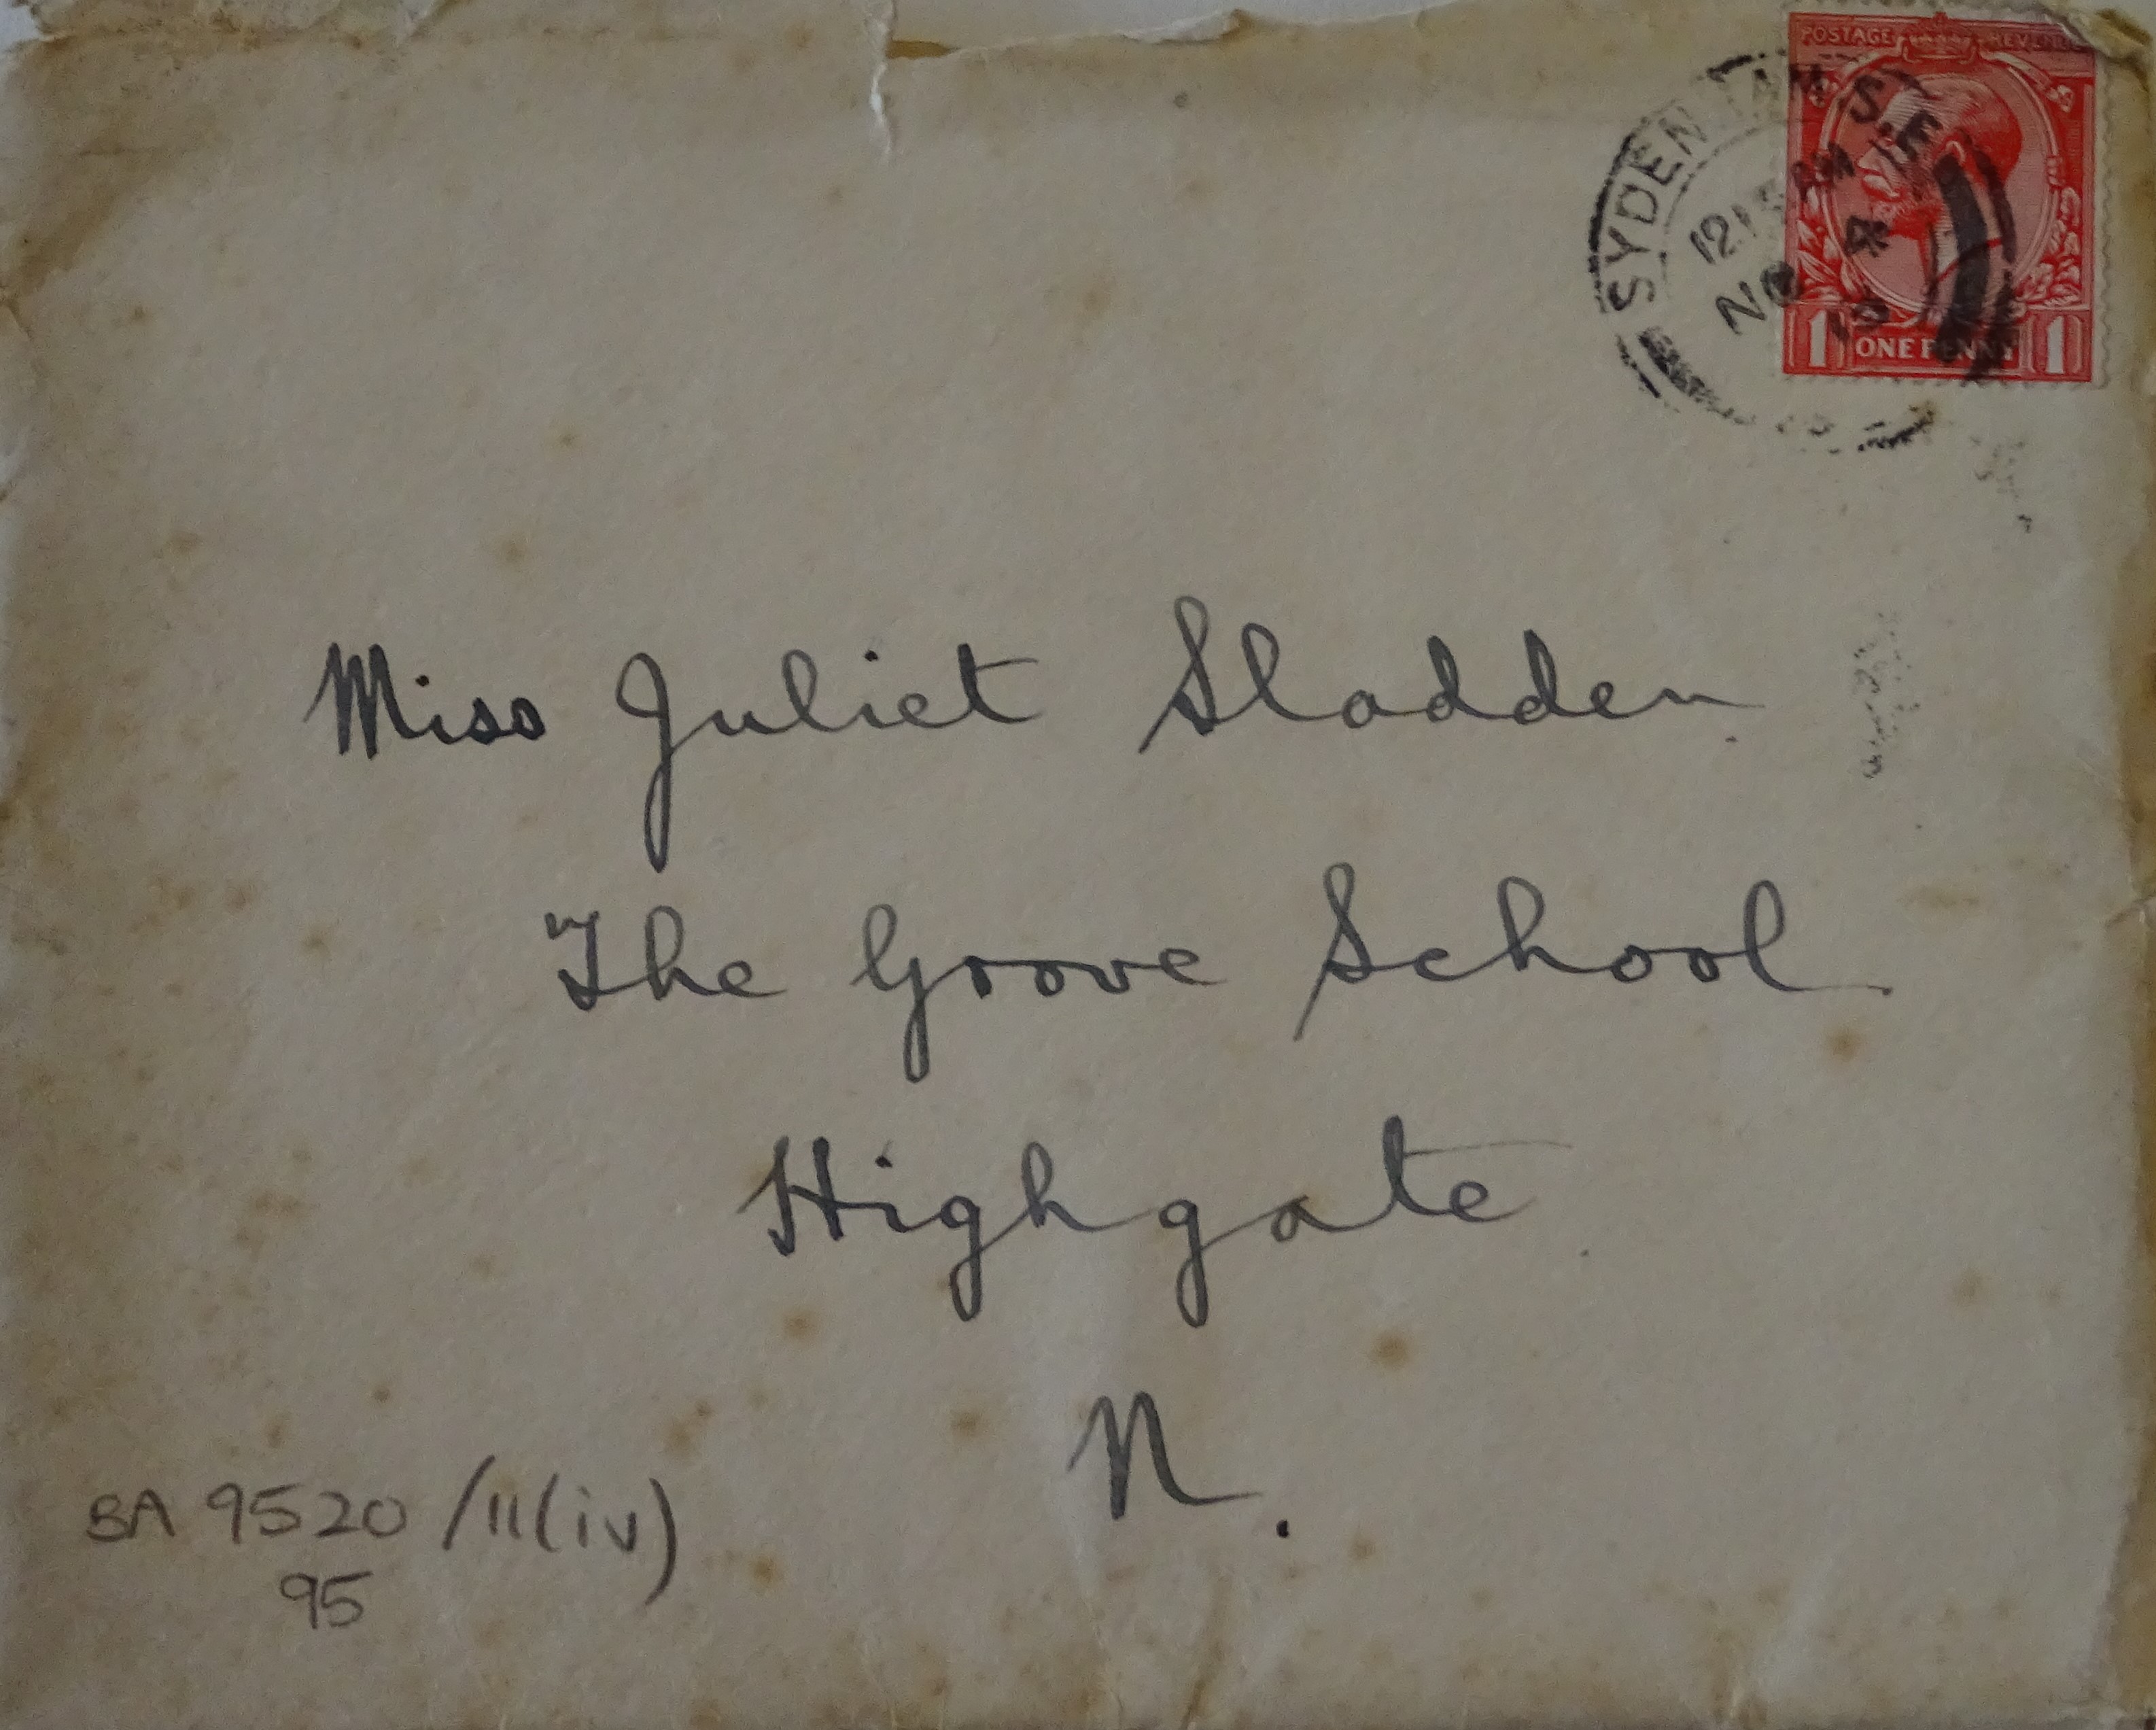 POSTAGE REVENUE
SYDENHAM S.E.
1215 AM
NO 4
1 ONE PENNY 1
Miss Juliet Sladden
The Grove School
Highgate
N.
BA 9520/11(iv)
95